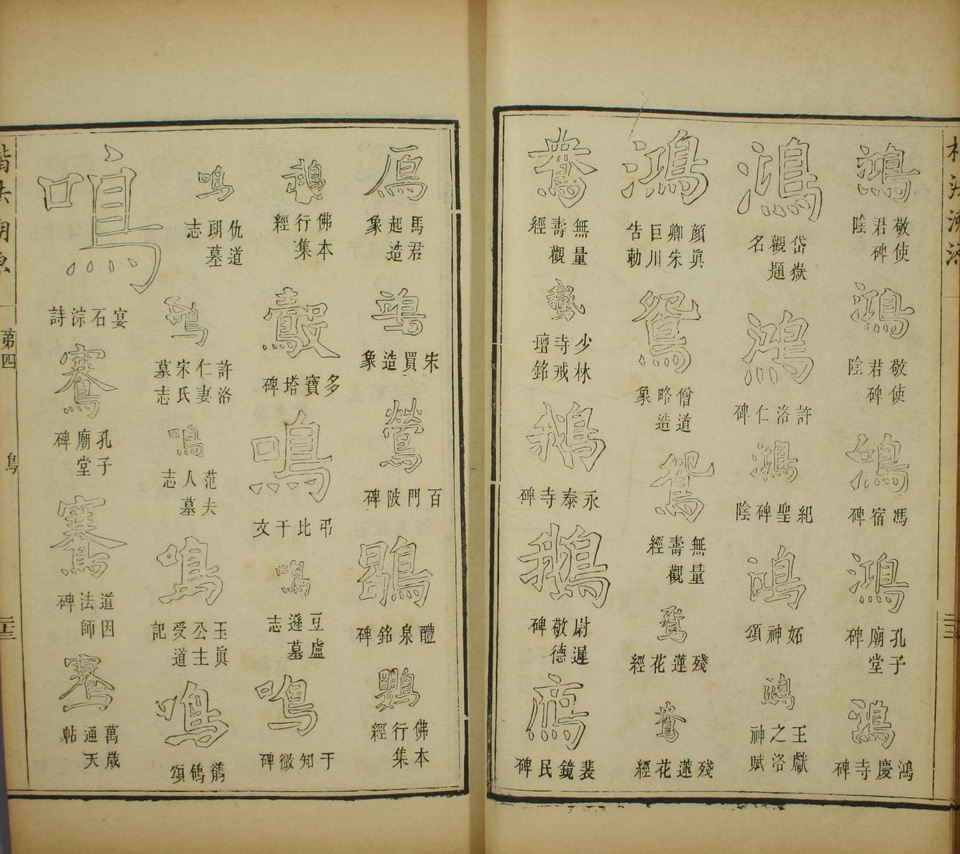 鴻 敬使君碑陰
鴻 敬使君碑陰
鴻 馮宿碑
鴻 孔子廟堂碑
鴻 鴻慶寺碑
鴻 岱嶽觀題名
鴻 許洛仁碑
鴻 紀聖碑陰
鴻 妬神頌
鴻 王獻之洛神賦
鴻 顏眞卿朱巨川告勅
鴛 僧道略造象
鴛 無量壽觀經
鴛 殘蓮花經
鴦 殘蓮花經
鴦 無量壽觀經
鵞 少林寺戒壇銘
鵝 永泰寺碑
鵝 尉遲敬德碑
鴈 裴鏡民碑
鴈 馬君起造象
朱買造象
鶯 百門陂碑
鶡 醴泉銘碑
鸚 佛本行集經
佛本行集經
鷇 多寶塔碑
鳴 弔比干文
鳴 豆盧遜墓志
鳴 于知微碑
鳴 仇道朗墓志
鳴 許洛仁妻宋氏墓志
鳴 范夫人墓志
鳴 玉眞公主受道記
鳴 鶺鴒頌
鳴 宴石淙詩
鶱 孔子廟堂碑
鶱 道因法師碑
鶱 萬歲通天帖
楷法溯源 第四 鳥